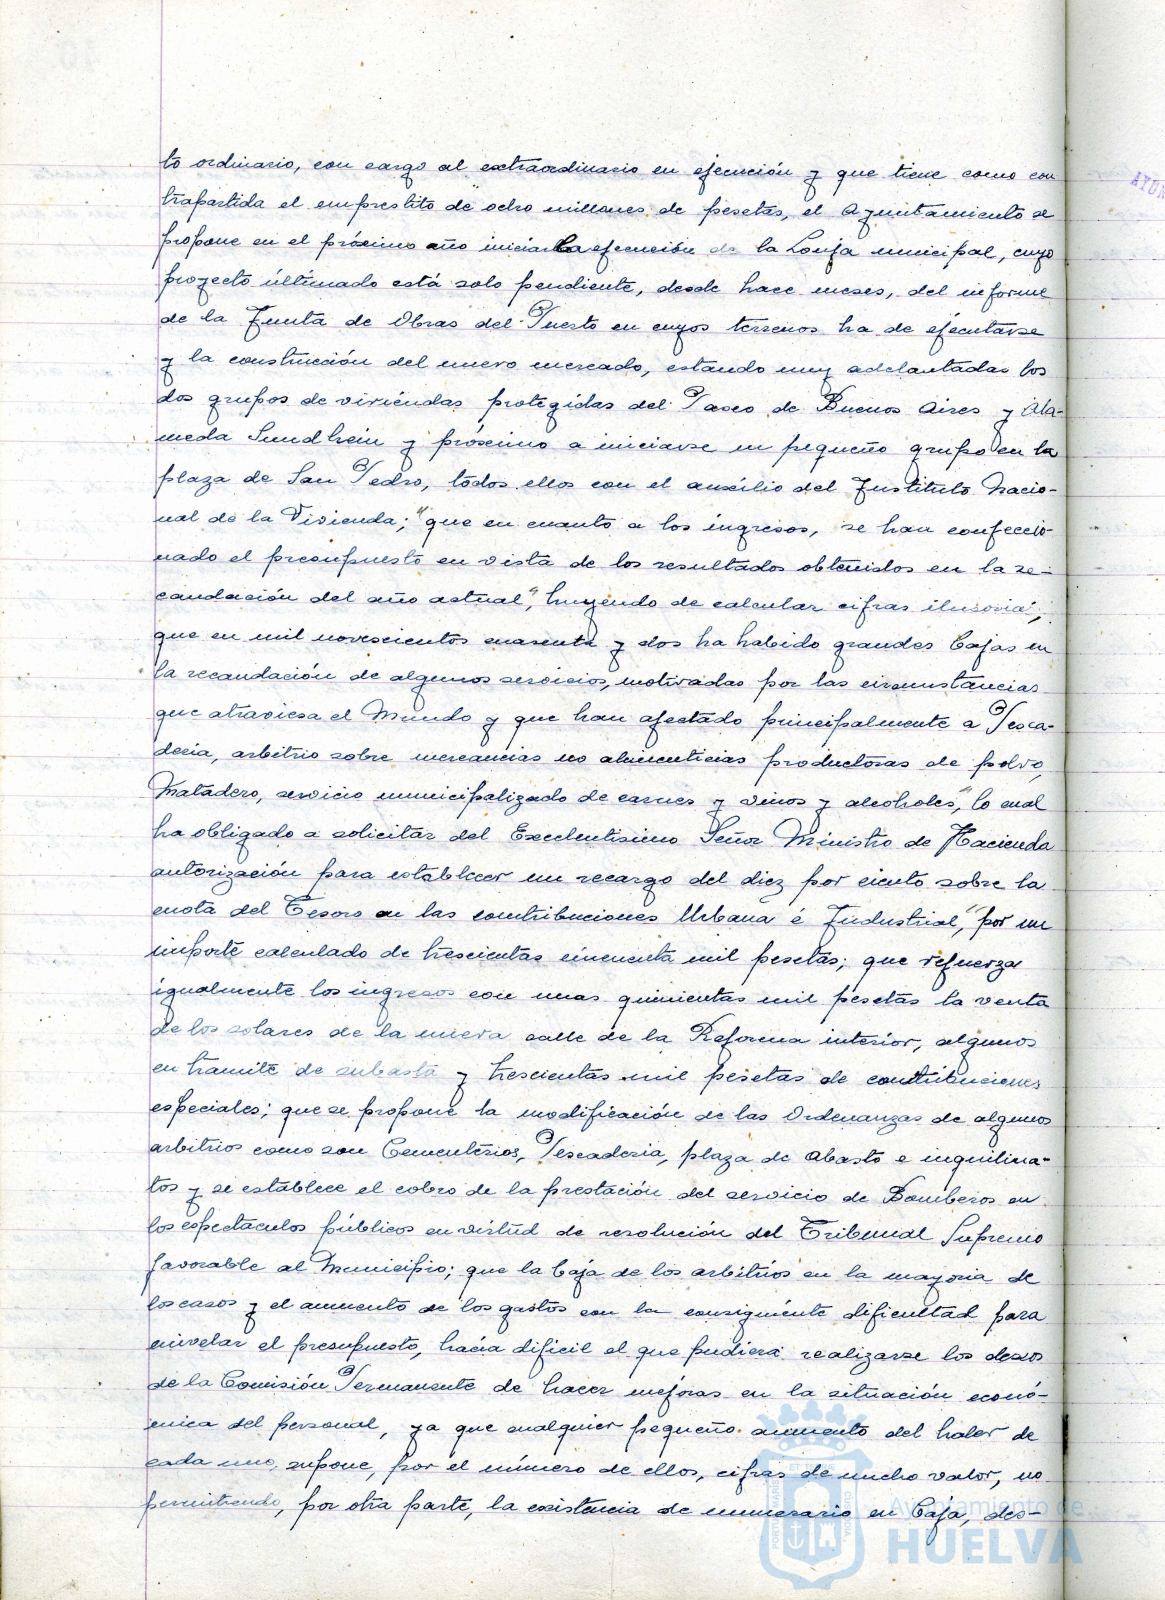 to ordinario, con cargo al extraordinario en ejecución y que tiene como con
trapartida el emprestito de "ocho millones de pesetas, el Ayuntamiento se
propone en el próximo año iniciar la ejecución de la Lonja municipal, cuyo
proyecto últimado está solo pendiente, desde hace meses, del informe
de la Junta de Obras del Puerto en cuyos terrenos ha de ejecutarse
y la construcción del nuevo mercado, estando muy adelantadas los
dos grupos de viviendas protegidas del Paseo de Buenos Aires y Ala-
meda Sundhein y próximo a iniciarse un pequeño grupo en la
plaza de San Pedro, todos ellos con el auxilio del Instituto Nacio-
nal de la Vivienda; "que en cuanto a los ingresos, se han confeccio-
nado el presupuesto en vista de los resultados obtenidos en la re-
caudación del año actual", huyendo de calcular cifras ilusorias;
que en mil novescientos cuarenta y dos ha habido grandes bajas en
la recaudación de algunos servicios, motivadas por las circunstancias
que atraviesa el Mundo y que han afectado principalmente a Pesca-
deria, arbitrio sobre mercancias no alimenticias productoras de polvo,
Matadero, servicio municipalizado de carnes y vinos y alcoholes", lo cual
ha obligado a solicitar del Excelentisimo Señor Ministro de Hacienda
autorización para establecer un recargo del diez por ciento sobre la
cuota del Tesoro en las contribuciones Urbana é Industrial," por un
importe calculado de trescientas cincuenta mil pesetas; que refuerza
igualmente los ingresos con unas quinientas mil pesetas la venta
de los solares de la nueva calle de la Reforma interior, algunos
en tramite de subasta y trescientas mil pesetas de contribuciones
especiales; que se propone la modificación de las Ordenanzas de algunos
arbitrios como son Cementerios, Pescaderia, plaza de Abasto e inquilina-
tos y se establece el cobro de la prestación del servicio de Bomberos en
los espectáculos públicos en virtud de resolución del Tribunal Supremo
favorable al Municipio; que la baja de los arbitrios en la mayoria de
los casos y el aumento de los gastos con la consiguiente dificultad para
nivelar el presupuesto, hacia dificil el que pudiera realizarse los deseos
de la Comisión Permanente de hacer mejoras en la situación econó-
mica del personal, ya que cualquier pequeño aumento del haber de
cada uno, supone, por el número de ellos, cifras de mucho valor, no
permitiendo, por otra parte, la existencia de numerario en Caja, des-
Ayuntamiento de
HUELVA